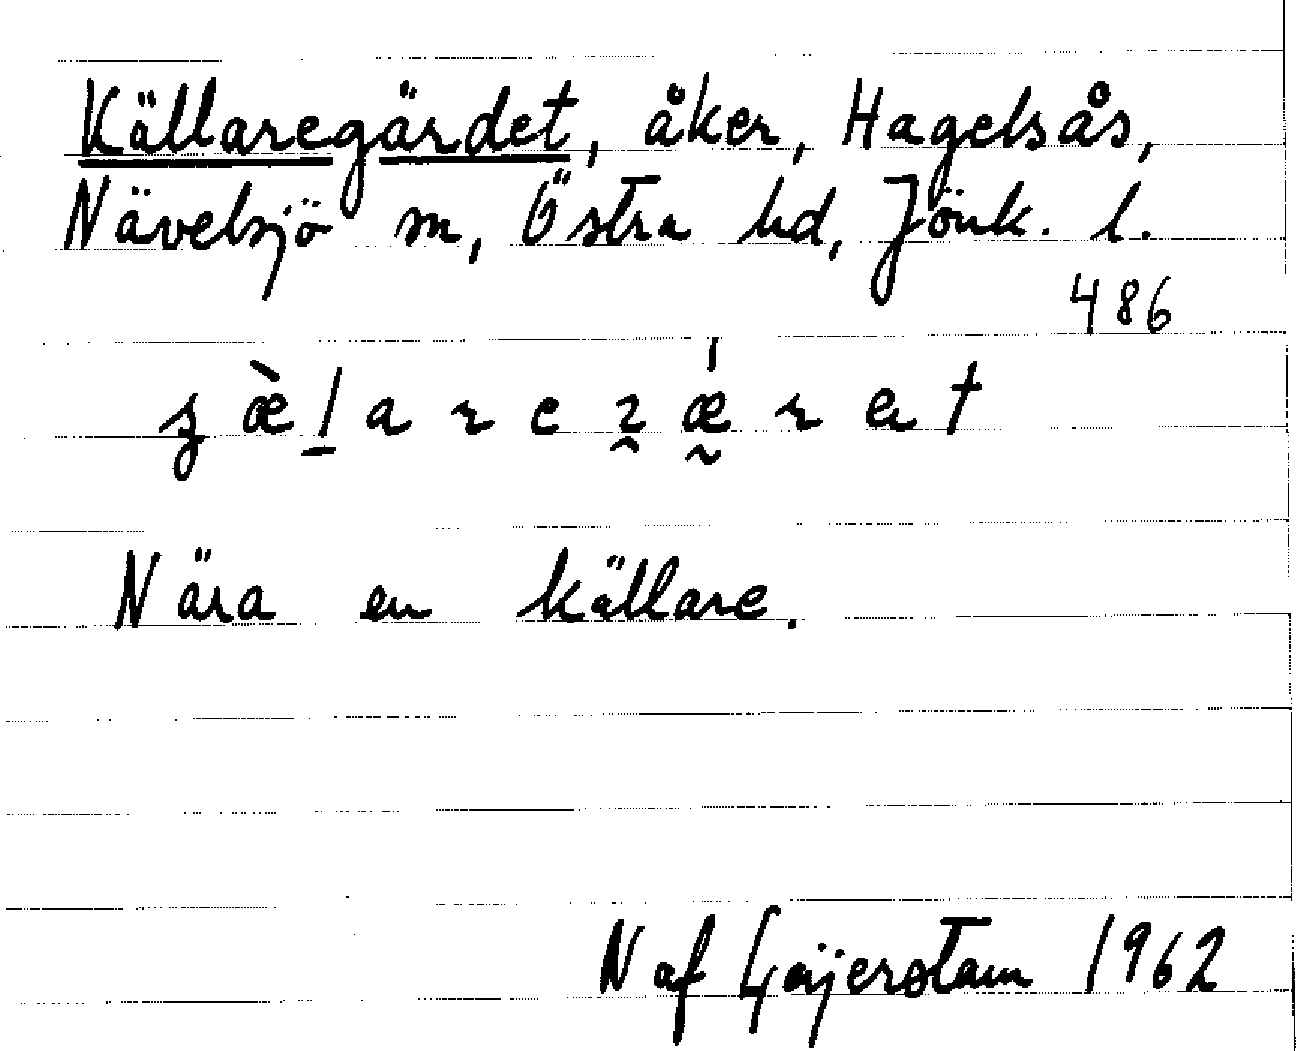 Källaregärdet, åker, Hagelsås,
Nävelsjö sn, Östra hd, Jönk. l.
486
Nära en källare.
N af Geijerstam 1962